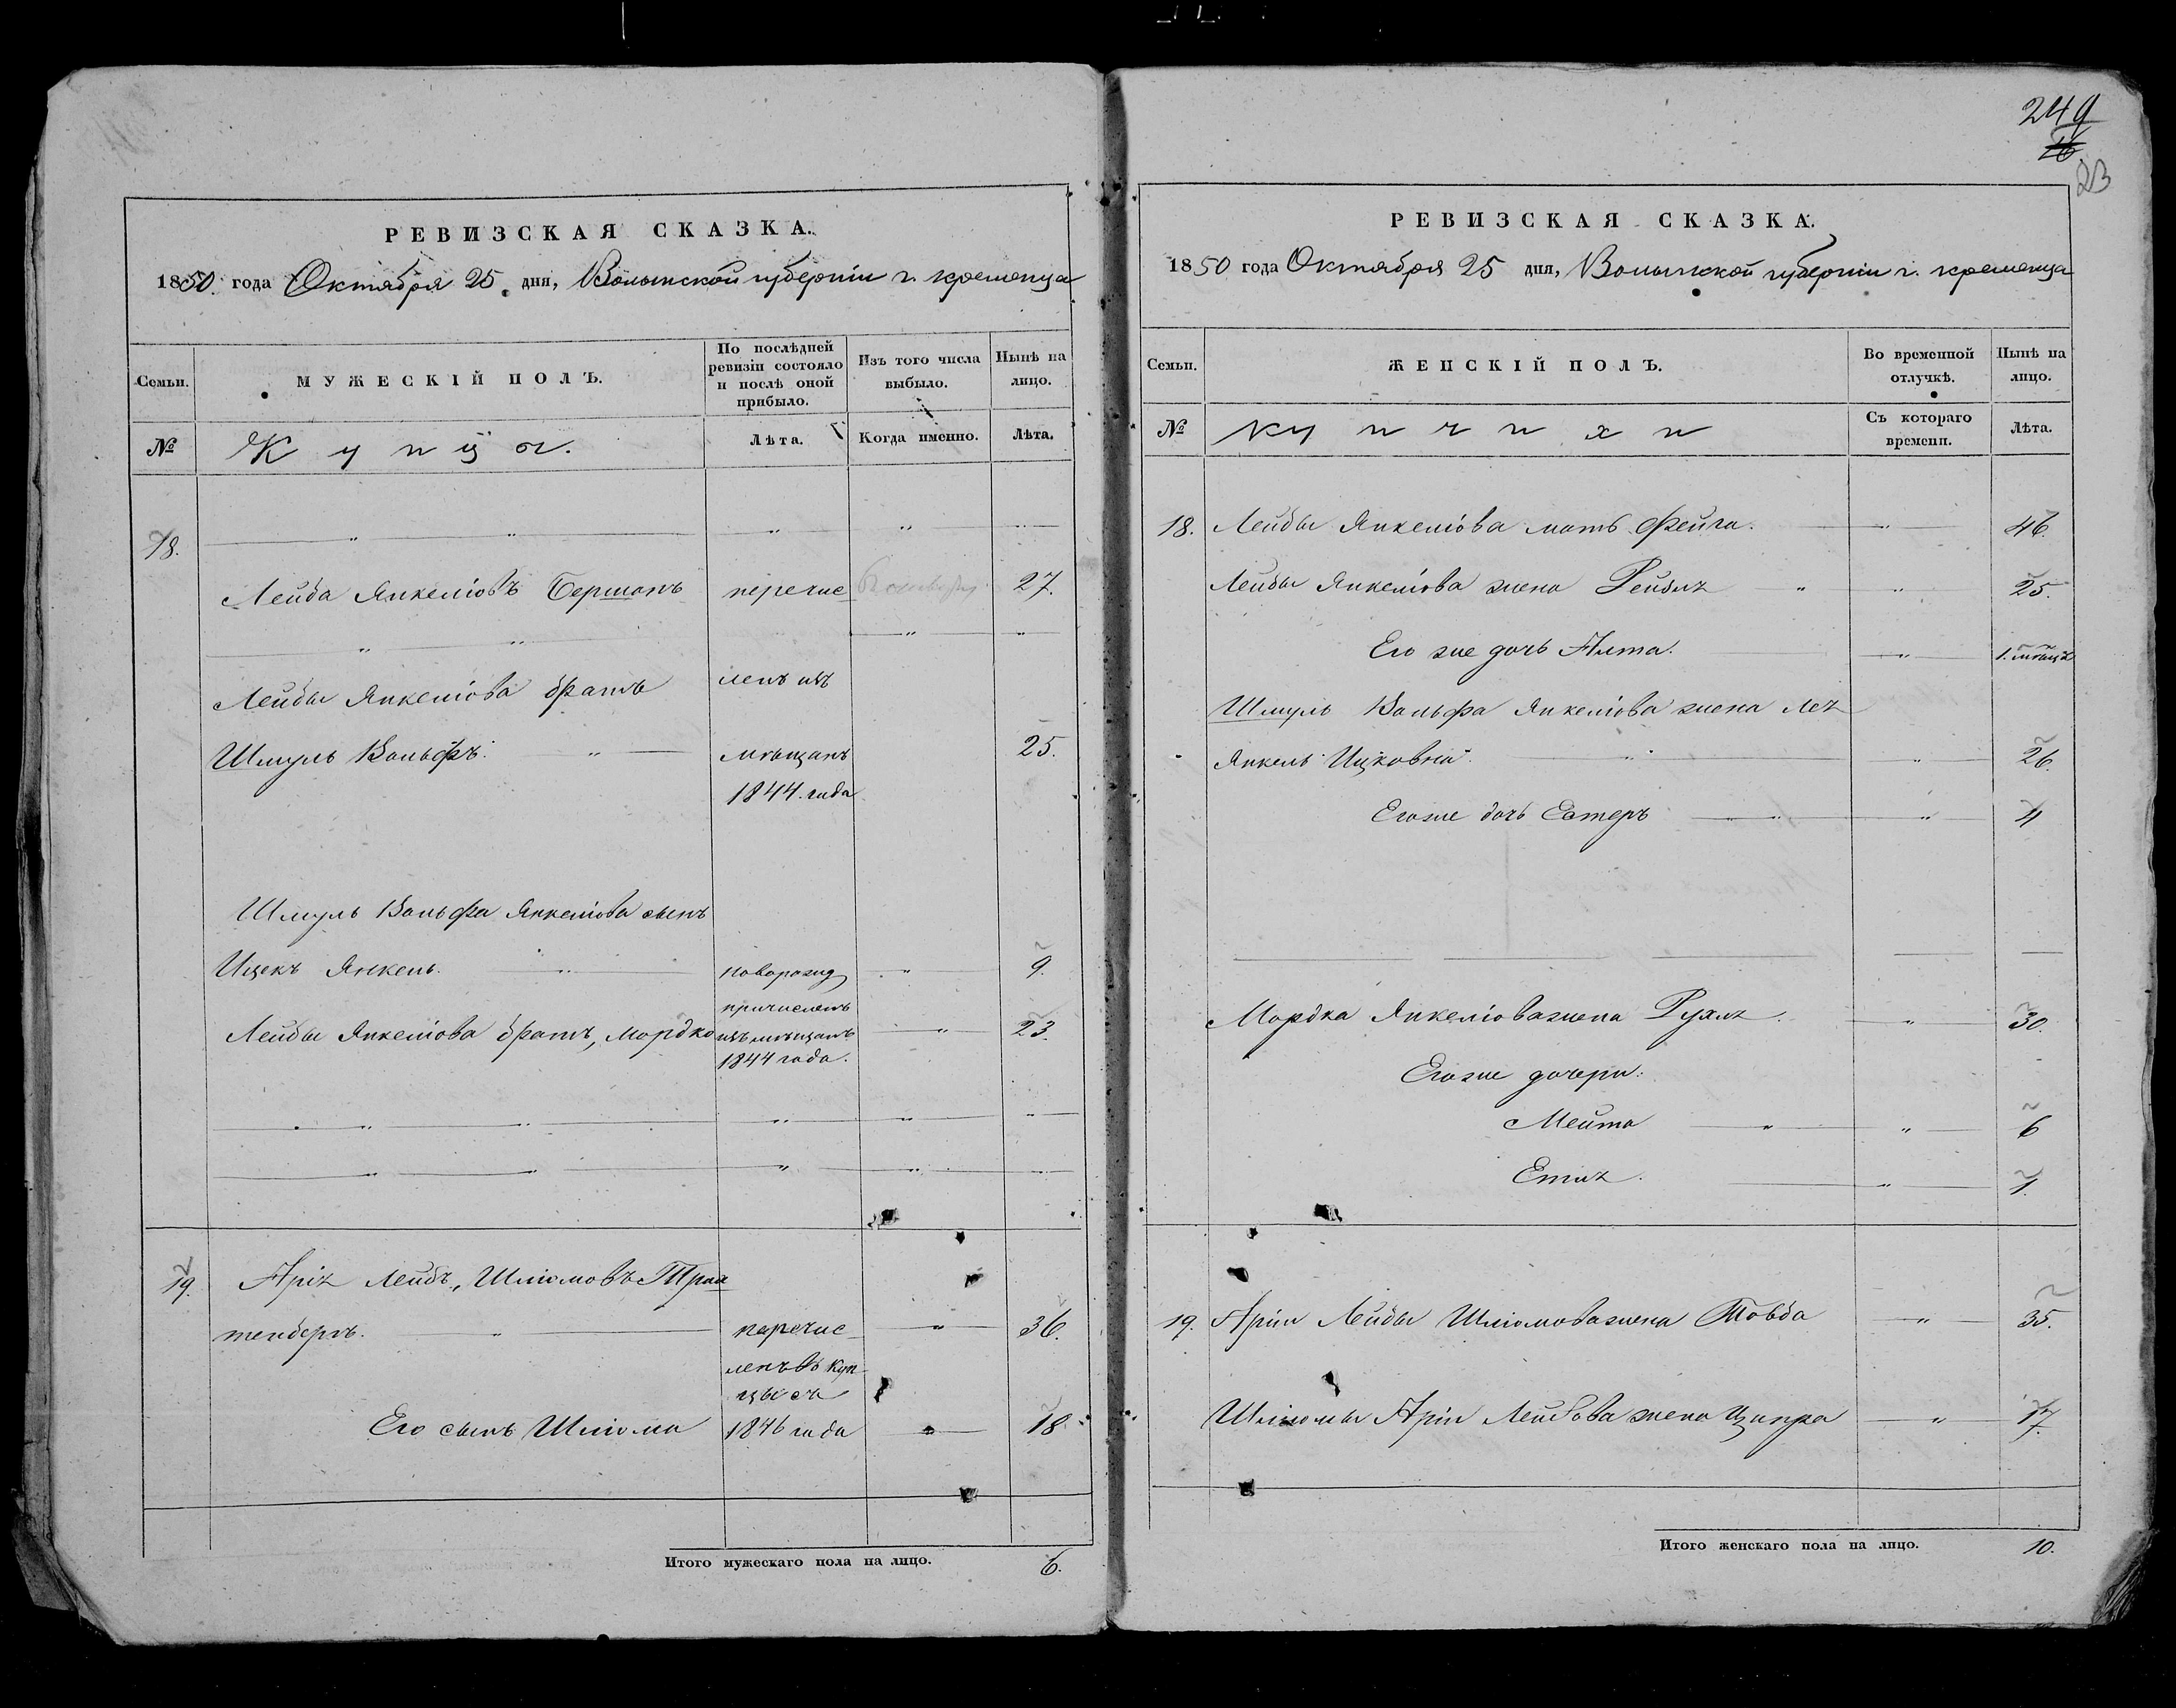 249
16
23
РЕВИЗСКАЯ СКАЗКА.
1850 года Октября 25 дня, Волынской губерніи г. кременца
Семьи.
МУЖЕСКІЙ ПОЛЪ.
По послѣдней ревизіи состояло и послѣ оной прибыло.
Изъ того числа выбыло.
Нынѣ на лицо.
№
Купцы.
Лѣта.
Когда именно.
Лѣта.
18.
Лейба Янкеліовъ Берманъ перечис 27.
Лейбы Янкеліова братъ ленъ изъ
Шмуль Вольфъ. мѣщанъ 25.
1844. года
Шмуль Вольфа Янкеліова сынъ
Ицекъ Янкель. новорожд 9.
причисленъ
Лейбы Янкеліова братъ, Мордко изъ мѣщанъ 23.
1844 года.
19. Аріѧ Лейбъ, Шліомовъ
тенберъ. перечис 36.
ленъ въ куп
цы съ
Его сынъ Шліома 1846 года 18.
Итого мужескаго пола на лицо. 6.
РЕВИЗСКАЯ СКАЗКА.
1850 года Октября 25 дня, Волынской губерніи г. кременца
Семьи.
ЖЕНСКІЙ ПОЛЪ.
Во временной отлучкѣ.
Нынѣ на лицо.
№
Купчихи
Съ котораго времени.
Лѣта.
18. Лейбы Янкеліова мать Фейга. 46.
Лейбы Янкеліова жена Рейзѧ 25.
Его же дочь Алта. 1. мѣсяцъ
Шмуль Вольфа Янкеліова жена Леѧ
Янкель Ицковна. 26.
Егоже дочь Естеръ 4
Мордка Янкеліова жена Рухлѧ. 30.
Егоже дочери:
Мейта 6
Етлѧ. 1.
19. Аріи Лейбы Шліомова жена Товба 35.
Шліомы Аріи Лейбова жена Ципра 17.
Итого женскаго пола на лицо. 10.